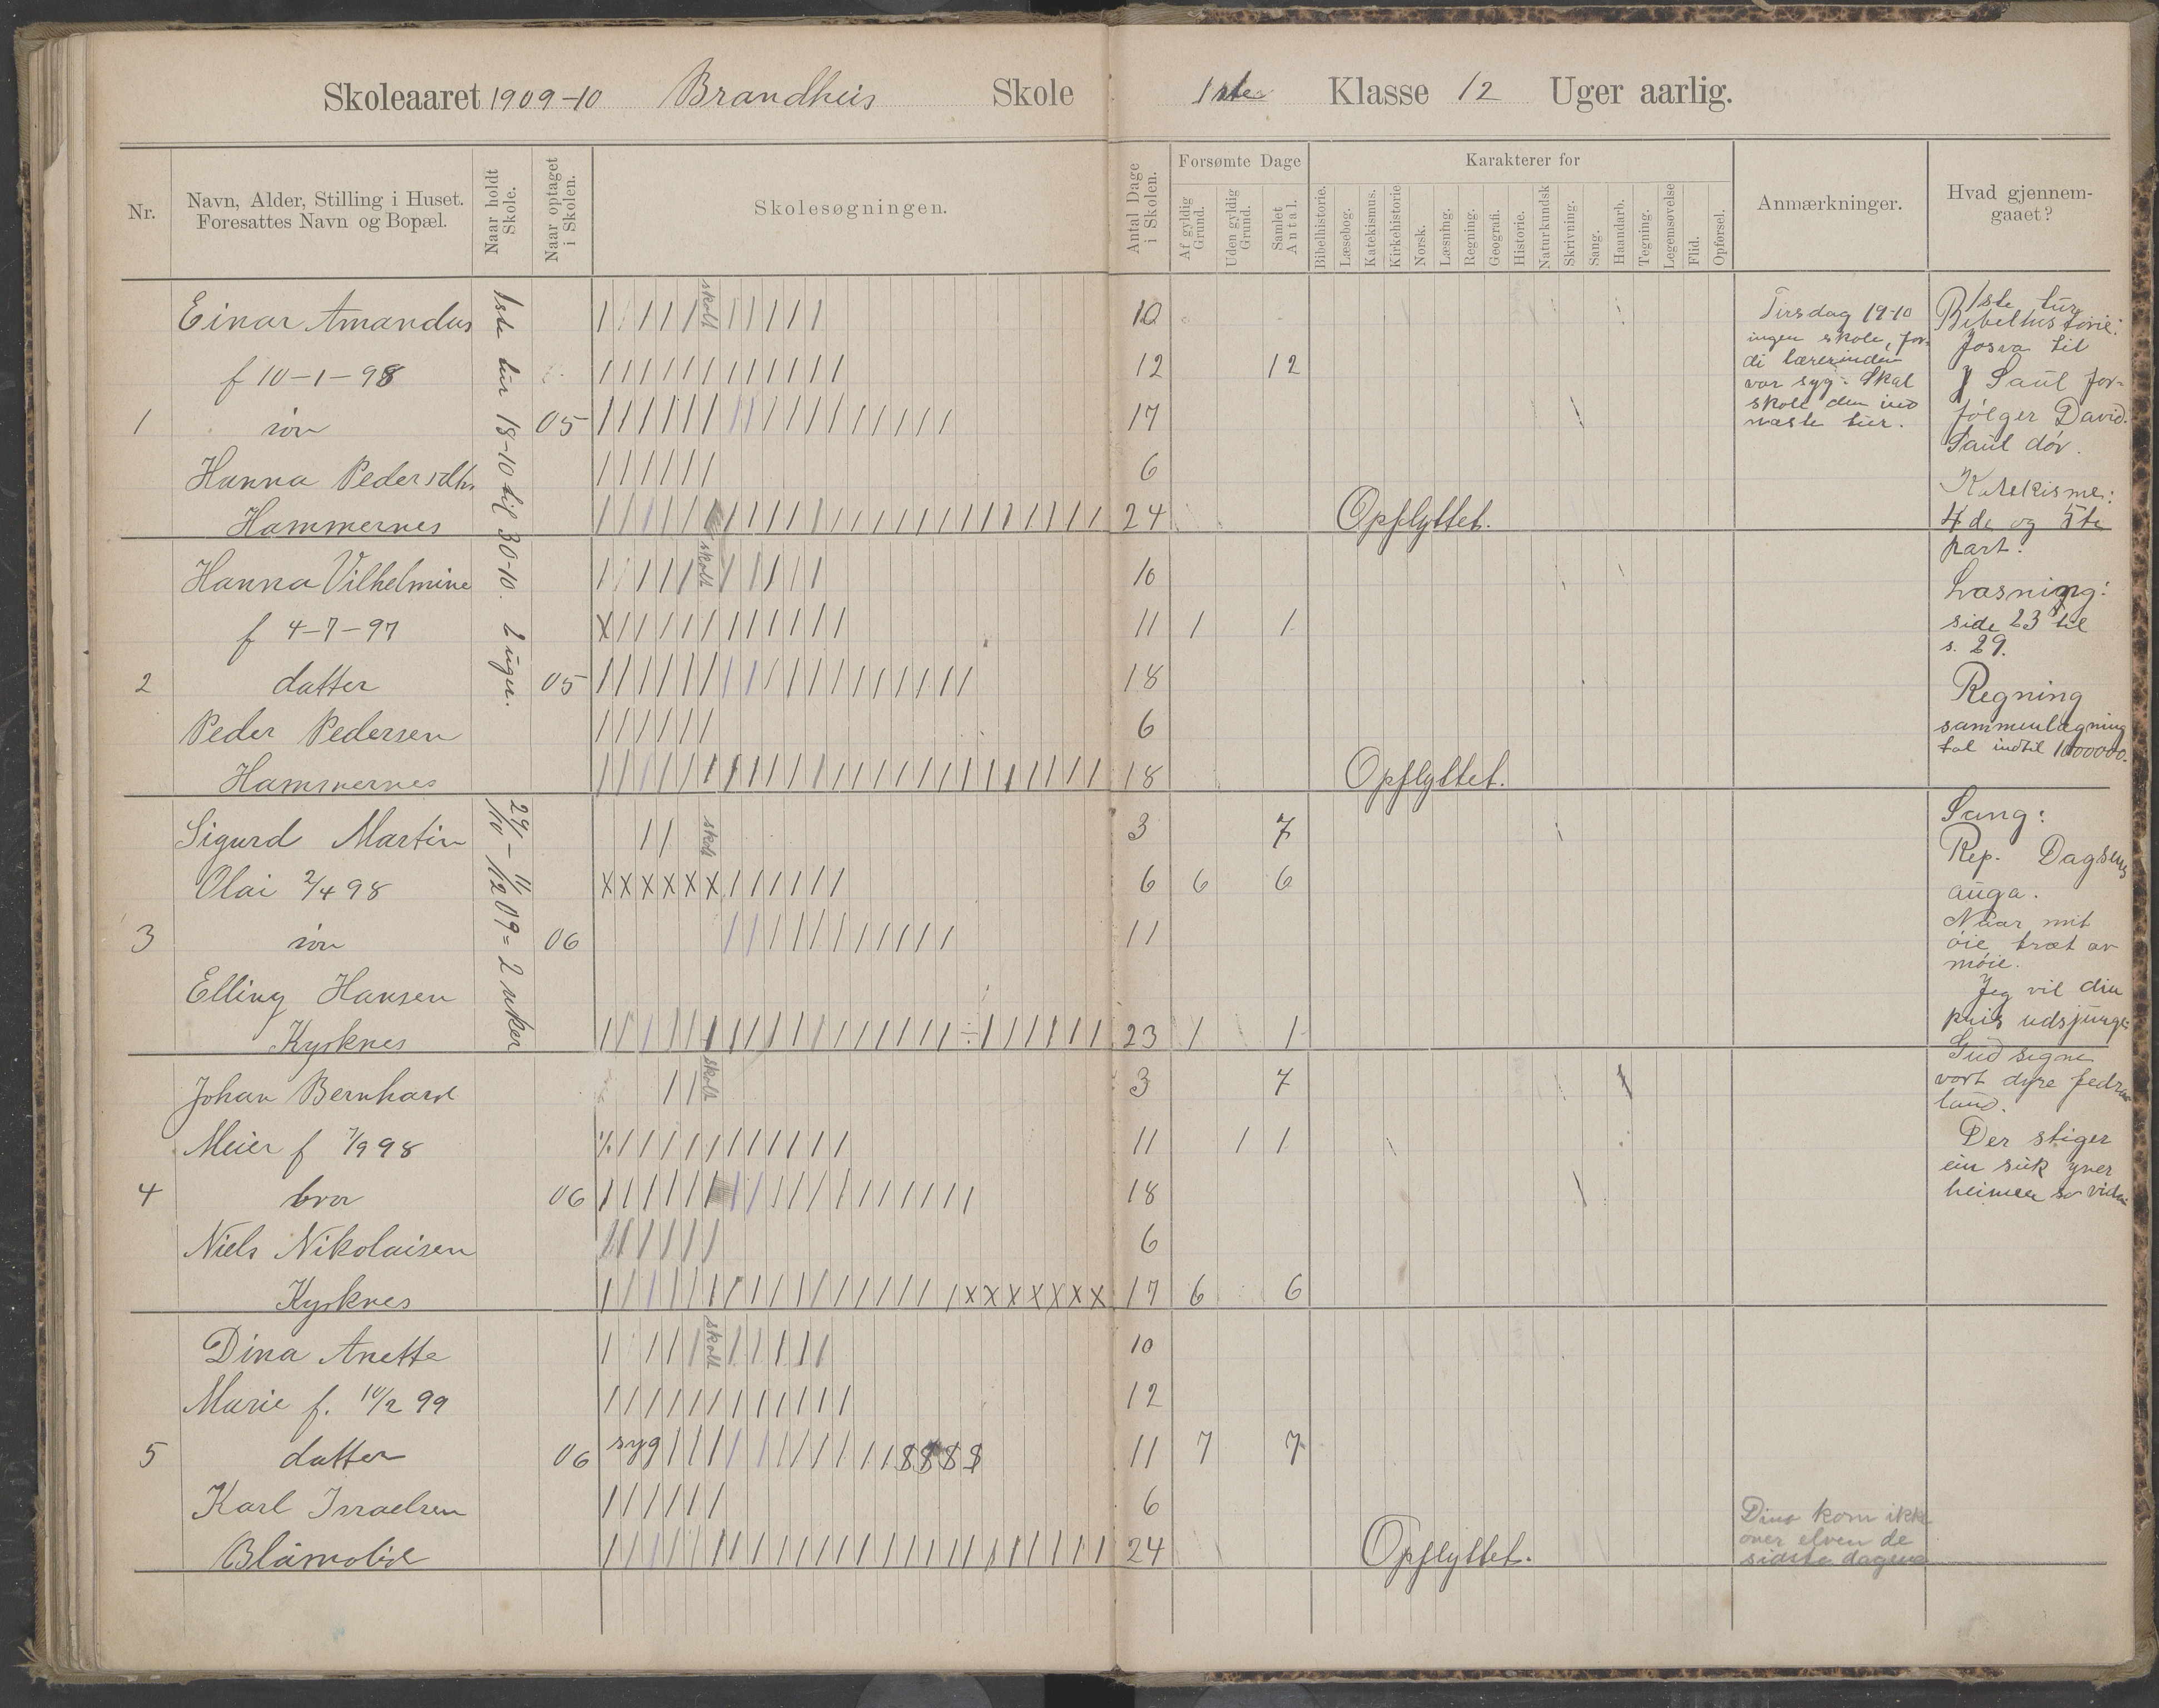 Skoleaaret 1909-10 Brandheis Skole 1ste Klasse 12 Uger aarlig.
Nr.
Navn, Alder, Stilling i Huset.
Foresattes Navn og Bopæl.
Naar holdt
Skole.
Naar optaget
i Skolen.
Skolesøgningen.
Antal Dage
i Skolen.
Forsømte Dage
Af gyldig
Grund.
Uden gyldig
Grund.
Samlet
Antal.
Karakterer for
Bibelhistorie.
Læsebog.
Katekismus.
Kirkehistorie
Norsk.
Læsning.
Regning.
Geografi.
Historie.
Naturkundsk
Skrivning.
Sang.
Haandarb.
Tegning.
Legemsøvelse
Flid.
Opførsel.
Anmærkninger.
Hvad gjennem-
gaaet?
1ste tur 18-10 til 30-10. 2 uger.
29/10 - 11/12 09 = 2 uker
Einar Amandus skolt 10
f 10-1-98 12 12
1 søn 05 17
Hanna Pedersdtr. 6
Hammernes 24 Opflyttet.
Hanna Vilhelmine skolt 10
f 4-7-97 x 11 1 1
2 datter 05 18
Peder Pedersen 6
Hammernes 18 Opflyttet.
Sigurd Martin skolt 3 7
Olai 2/4 98 xxxxxx 6 6 6
3 søn 06 11
Elling Hansen
Kjerknes 23 1 1
Johan Bernhard skolt 3 7
Meier f 7/9 98 11 1 1
4 bror 06 18
Niels Nikolaisen 6
Kjerknes xxxxxxx 17 6 6
Dina Anette skolt 10
Marie f. 10/2 99 12
5 datter 06 syg 11 7 7
Karl Israelsen 6
Blåmoli 24 Opflyttet.
Tirsdag 19-10
ingen skole, for-
di lærerinden
var syg. Skal
skole den ind
næste tur.
Dina kom ikke
over elven de
sidste dagene
1ste tur
Bibelhistorie:
Josva til
Saul for-
følger David.
Saul dør.
Katekisme:
4de og 5te
part.
Læsning:
side 23 til
s. 29.
Regning
sammenlægning
tal indtil 1000000.
Sang:
Rep. Dagsens
auga.
Naar mit
øie, træt av
møie.
Jeg vil din
pris udsjunge
Gud signe
vort dyre fedra
land.
Der stiger
ein suk yver
heimen so vide